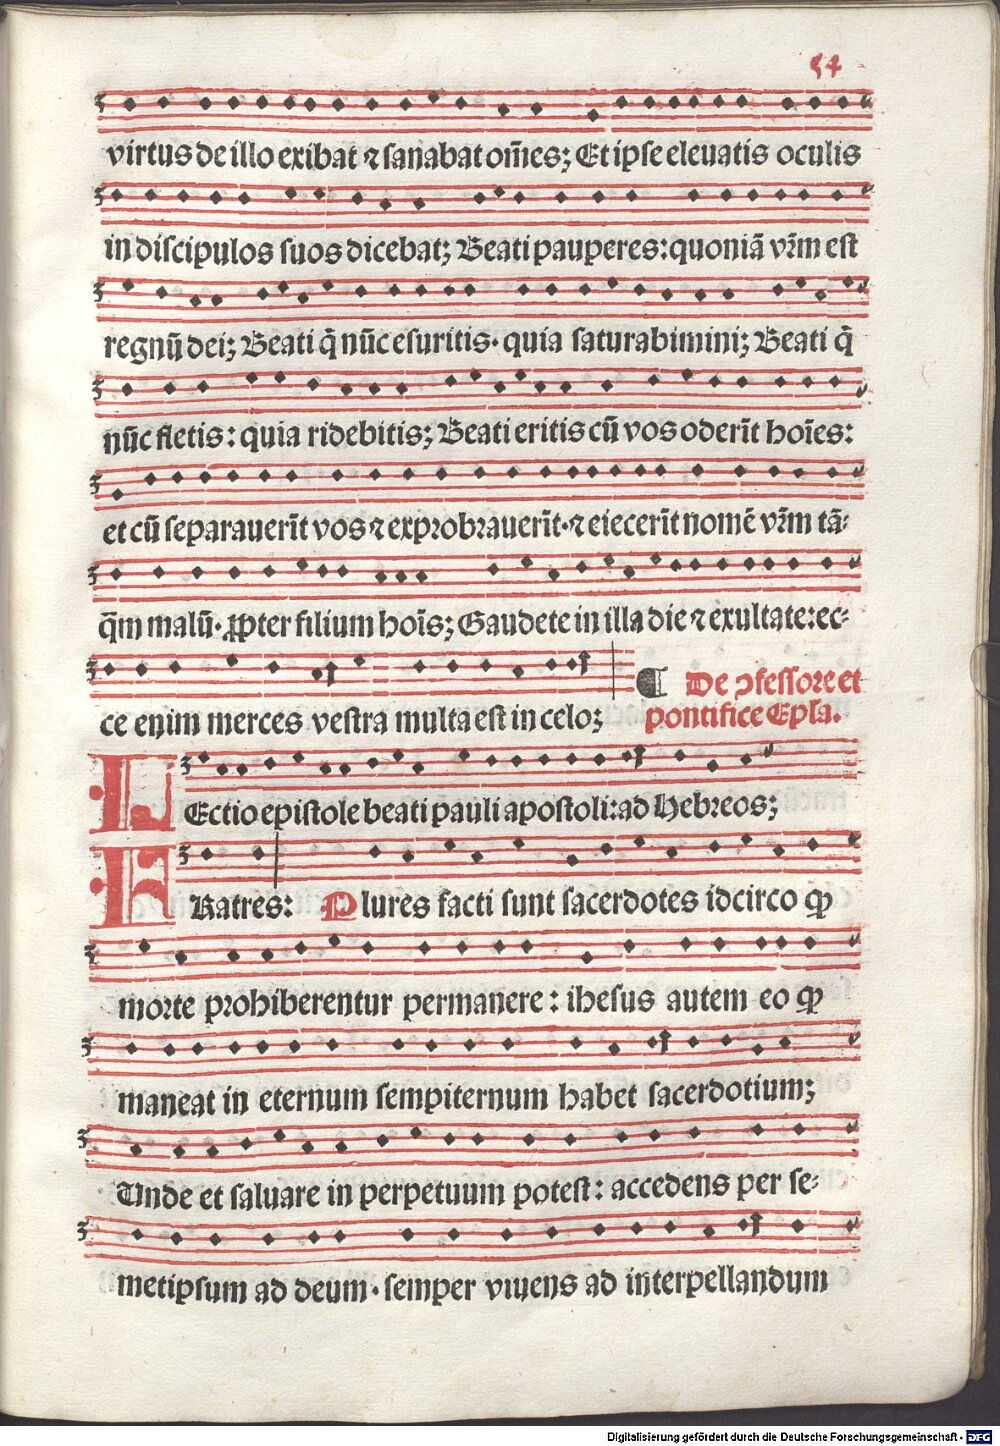 54
virtus de illo exibat ⁊ sanabat om̄es; Et ipse eleuatis oculis
in discipulos suos dicebat; Beati pauperes: quoniā vr̄m est
regnū dei; Beati q̄ nūc esuritis· quia saturabimini; Beati q̄
nūc fletis: quia ridebitis; Beati eritis cū vos oderīt hoīes:
et cū separauerīt vos ⁊ exprobrauerīt· ⁊ eiecerīt nomē vr̄m tā⸗
q̄m malū· ꝓpter filium hoīs; Gaudete in illa die ⁊ exultate: ec⸗
ce enim merces vestra multa est in celo;
¶ De ↄfessore et
pontifice Epl̄a.
LEctio epistole beati pauli apostoli: ad Hebreos;
FRatres: Plures facti sunt sacerdotes idcirco ꝙ
morte prohiberentur permanere: ihesus autem eo ꝙ
maneat in eternum sempiternum habet sacerdotium;
Unde et saluare in perpetuum potest: accedens per se⸗
metipsum ad deum· semper viuens ad interpellandum
Digitalisierung gefördert durch die Deutsche Forschungsgemeinschaft - DFG